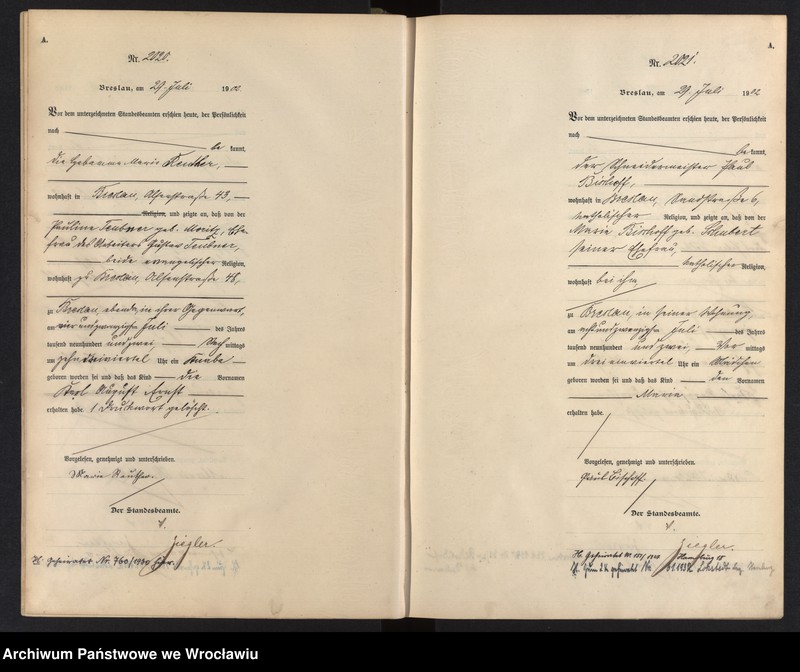 A.
Nr. 2020.
Breslau, am 29. Juli 1902.
Vor dem unterzeichneten Standesbeamten erschien heute, der Persönlichkeit
nach
be kannt,
die Hebamme Marie Reuther,
wohnhaft in Breslau, Alsenstraße 43,
Religion, und zeigte an, daß von der
Pauline Teubner geb. Moritz, Ehe-
frau des Arbeiters Gustav Teubner,
beide evangelischer Religion,
wohnhaft zu Breslau, Alsenstraße 48,
zu Breslau, ebenda, in ihrer Gegenwart,
am vierundzwanzigsten Juli des Jahres
tausend neunhundert und zwei, Nach mittags
um zehn Uhr ein Knabe
geboren worden sei und daß das Kind die Vornamen
Karl August Ernst
erhalten habe. 1 Druckwort gelöscht.
Vorgelesen, genehmigt und unterschrieben.
Marie Reuther.
Der Standesbeamte.
V.
Ziegler.
H. Geheiratet Nr. 760/1930
A.
Nr. 2021.
Breslau, am 29. Juli 1902
Vor dem unterzeichneten Standesbeamten erschien heute, der Persönlichkeit
nach
be kannt,
der Schneidermeister Paul
Bischoff,
wohnhaft in Breslau, Sandstraße 6,
katholischer Religion, und zeigte an, daß von der
Marie Bischoff geb. Schubert
seiner Ehefrau,
katholischer Religion,
wohnhaft bei ihm
zu Breslau, in seiner Wohnung
am achtundzwanzigsten Juli des Jahres
tausend neunhundert und zwei, Vor mittags
um drei einviertel Uhr ein Mädchen
geboren worden sei und daß das Kind den Vornamen
Maria
erhalten habe.
Vorgelesen, genehmigt und unterschrieben.
Paul Bischoff.
Der Standesbeamte.
V.
Ziegler.
H. Geheiratet Hamburg
H. Zum 2. X geheiratet Nr.
Archiwum Państwowe we Wrocławiu